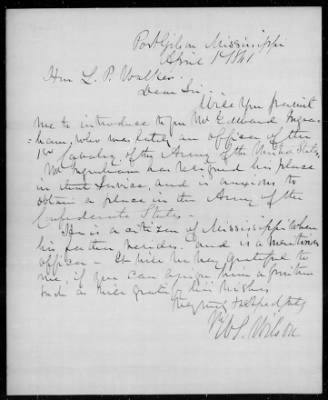 Port Gibson Mississippi
April 1st 1861
Hon L. P. Walker
Dear Sir.
Will you permit
me to introduce to you Mr Edward Ingra-
ham, who was lately an officer of the
1st Cavalry of the Army of the United States.
Mr Ingraham has resigned his place
in that Service, and is anxious to
obtain a place in the Army of the
Confederate States.
He is a citizen of Mississippi where
his father resides. and is a meritorious
officer - It will be very grateful to
me, if you can assign him a position
such as will gratify his wishes
Very Respectfully
Wilson